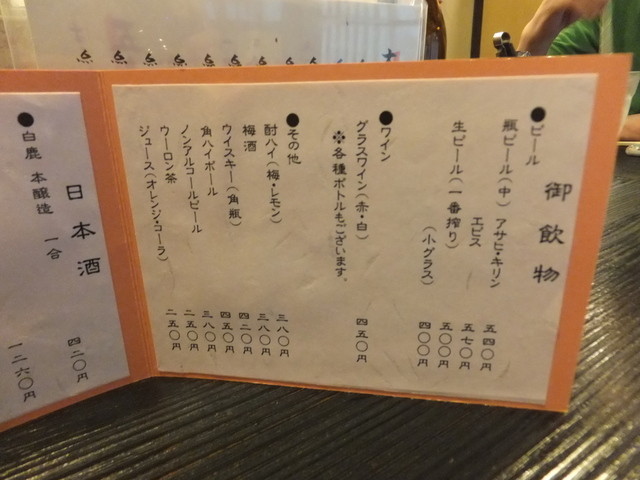 御飲物
●ビール
瓶ビール(中) アサヒ・キリン 五四〇円
エビス 五七〇円
生ビール(一番搾り) 五〇〇円
(小グラス) 四〇〇円
●ワイン
グラスワイン(赤・白) 四五〇円
※各種ボトルもございます。
●その他
酎ハイ(梅・レモン) 三八〇円
梅酒 三八〇円
ウイスキー(角瓶) 四二〇円
角ハイボール 四五〇円
ノンアルコールビール 三八〇円
ウーロン茶 二五〇円
ジュース(オレンジ・コーラ) 二五〇円
日本酒
●白鹿 本醸造 一合 四二〇円
一二六〇円